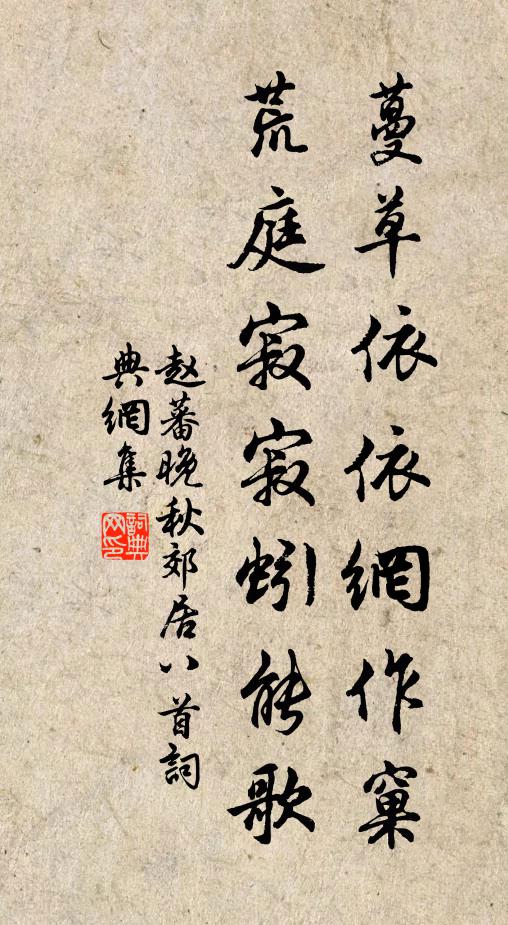 蔓草依依網作窠
荒庭寂寂蚓能歌
赵蕃晚秋郊居八首詞
典網集
詞典网印